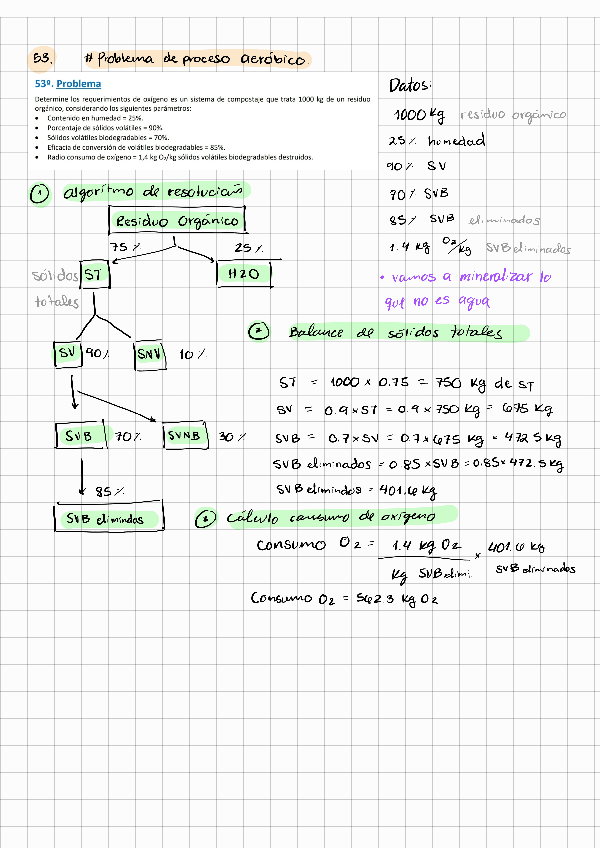 53. # Problema de proceso aeróbico.
53º. Problema
Determine los requerimientos de oxígeno es un sistema de compostaje que trata 1000 kg de un residuo
orgánico, considerando los siguientes parámetros:
• Contenido en humedad = 25%.
• Porcentaje de sólidos volátiles = 90%.
• Sólidos volátiles biodegradables = 70%.
• Eficacia de conversión de volátiles biodegradables = 85%.
• Radio consumo de oxígeno = 1,4 kg O₂/kg sólidos volátiles biodegradables destruidos.
Datos:
1000 kg residuo orgánico
25% humedad
90% SV
70% SVB
85% SVB eliminados
1.4 kg O2/kg SVB eliminados
• vamos a mineralizar lo
que no es agua
1 algoritmo de resolución
Residuo Orgánico
75% 25%
sólidos ST H2O
totales
SV 90% SNV 10%
SVB 70% SVNB 30%
85%
SVB elimindos
2 Balance de sólidos totales
ST = 1000 x 0.75 = 750 kg de ST
SV = 0.9 x ST = 0.9 x 750 kg = 675 kg
SVB = 0.7 x SV = 0.7 x 675 kg = 472.5 kg
SVB eliminados = 0.85 x SVB = 0.85 x 472.5 kg
SVB elimindos = 401.6 kg
3 Cálculo consumo de oxígeno
Consumo O2 = 1.4 kg O2 x 401.6 kg
kg SVB elimi. SVB eliminados
Consumo O2 = 562.3 kg O2